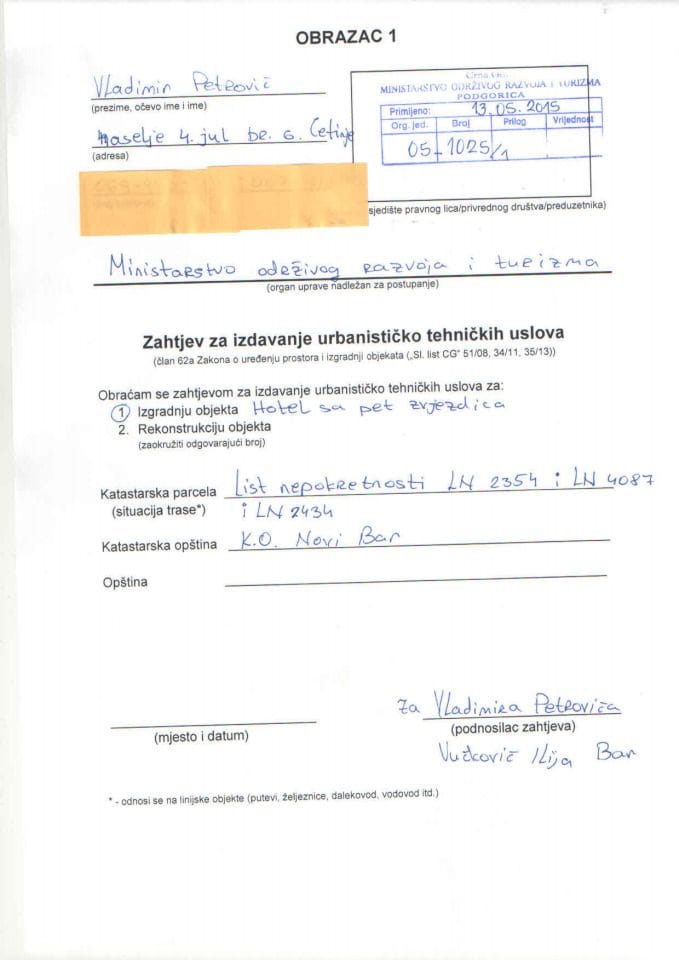 OBRAZAC 1
Vladimir Petrović
(prezime, očevo ime i ime)
naselje 4. jul br. 6. Cetinje
(adresa)
Crna Gora
MINISTARSTVO ODRŽIVOG RAZVOJA I TURIZMA
PODGORICA
Primljeno: 13.05.2015
Org. jed. Broj Prilog Vrijednost
05-1025/1
sjedište pravnog lica/privrednog društva/preduzetnika)
Ministarstvo održivog razvoja i turizma
(organ uprave nadležan za postupanje)
Zahtjev za izdavanje urbanističko tehničkih uslova
(član 62a Zakona o uređenju prostora i izgradnji objekata („Sl. list CG" 51/08, 34/11, 35/13))
Obraćam se zahtjevom za izdavanje urbanističko tehničkih uslova za:
1 Izgradnju objekta Hotel sa pet zvjezdica
2. Rekonstrukciju objekta
(zaokružiti odgovarajući broj)
Katastarska parcela List nepokretnosti LN 2354 i LN 4087
(situacija trase*) i LN 2434
Katastarska opština K.O. Novi Bar
Opština
za Vladimira Petrovića
(mjesto i datum) (podnosilac zahtjeva)
Vučković Ilija Bar
* - odnosi se na linijske objekte (putevi, željeznice, dalekovod, vodovod itd.)